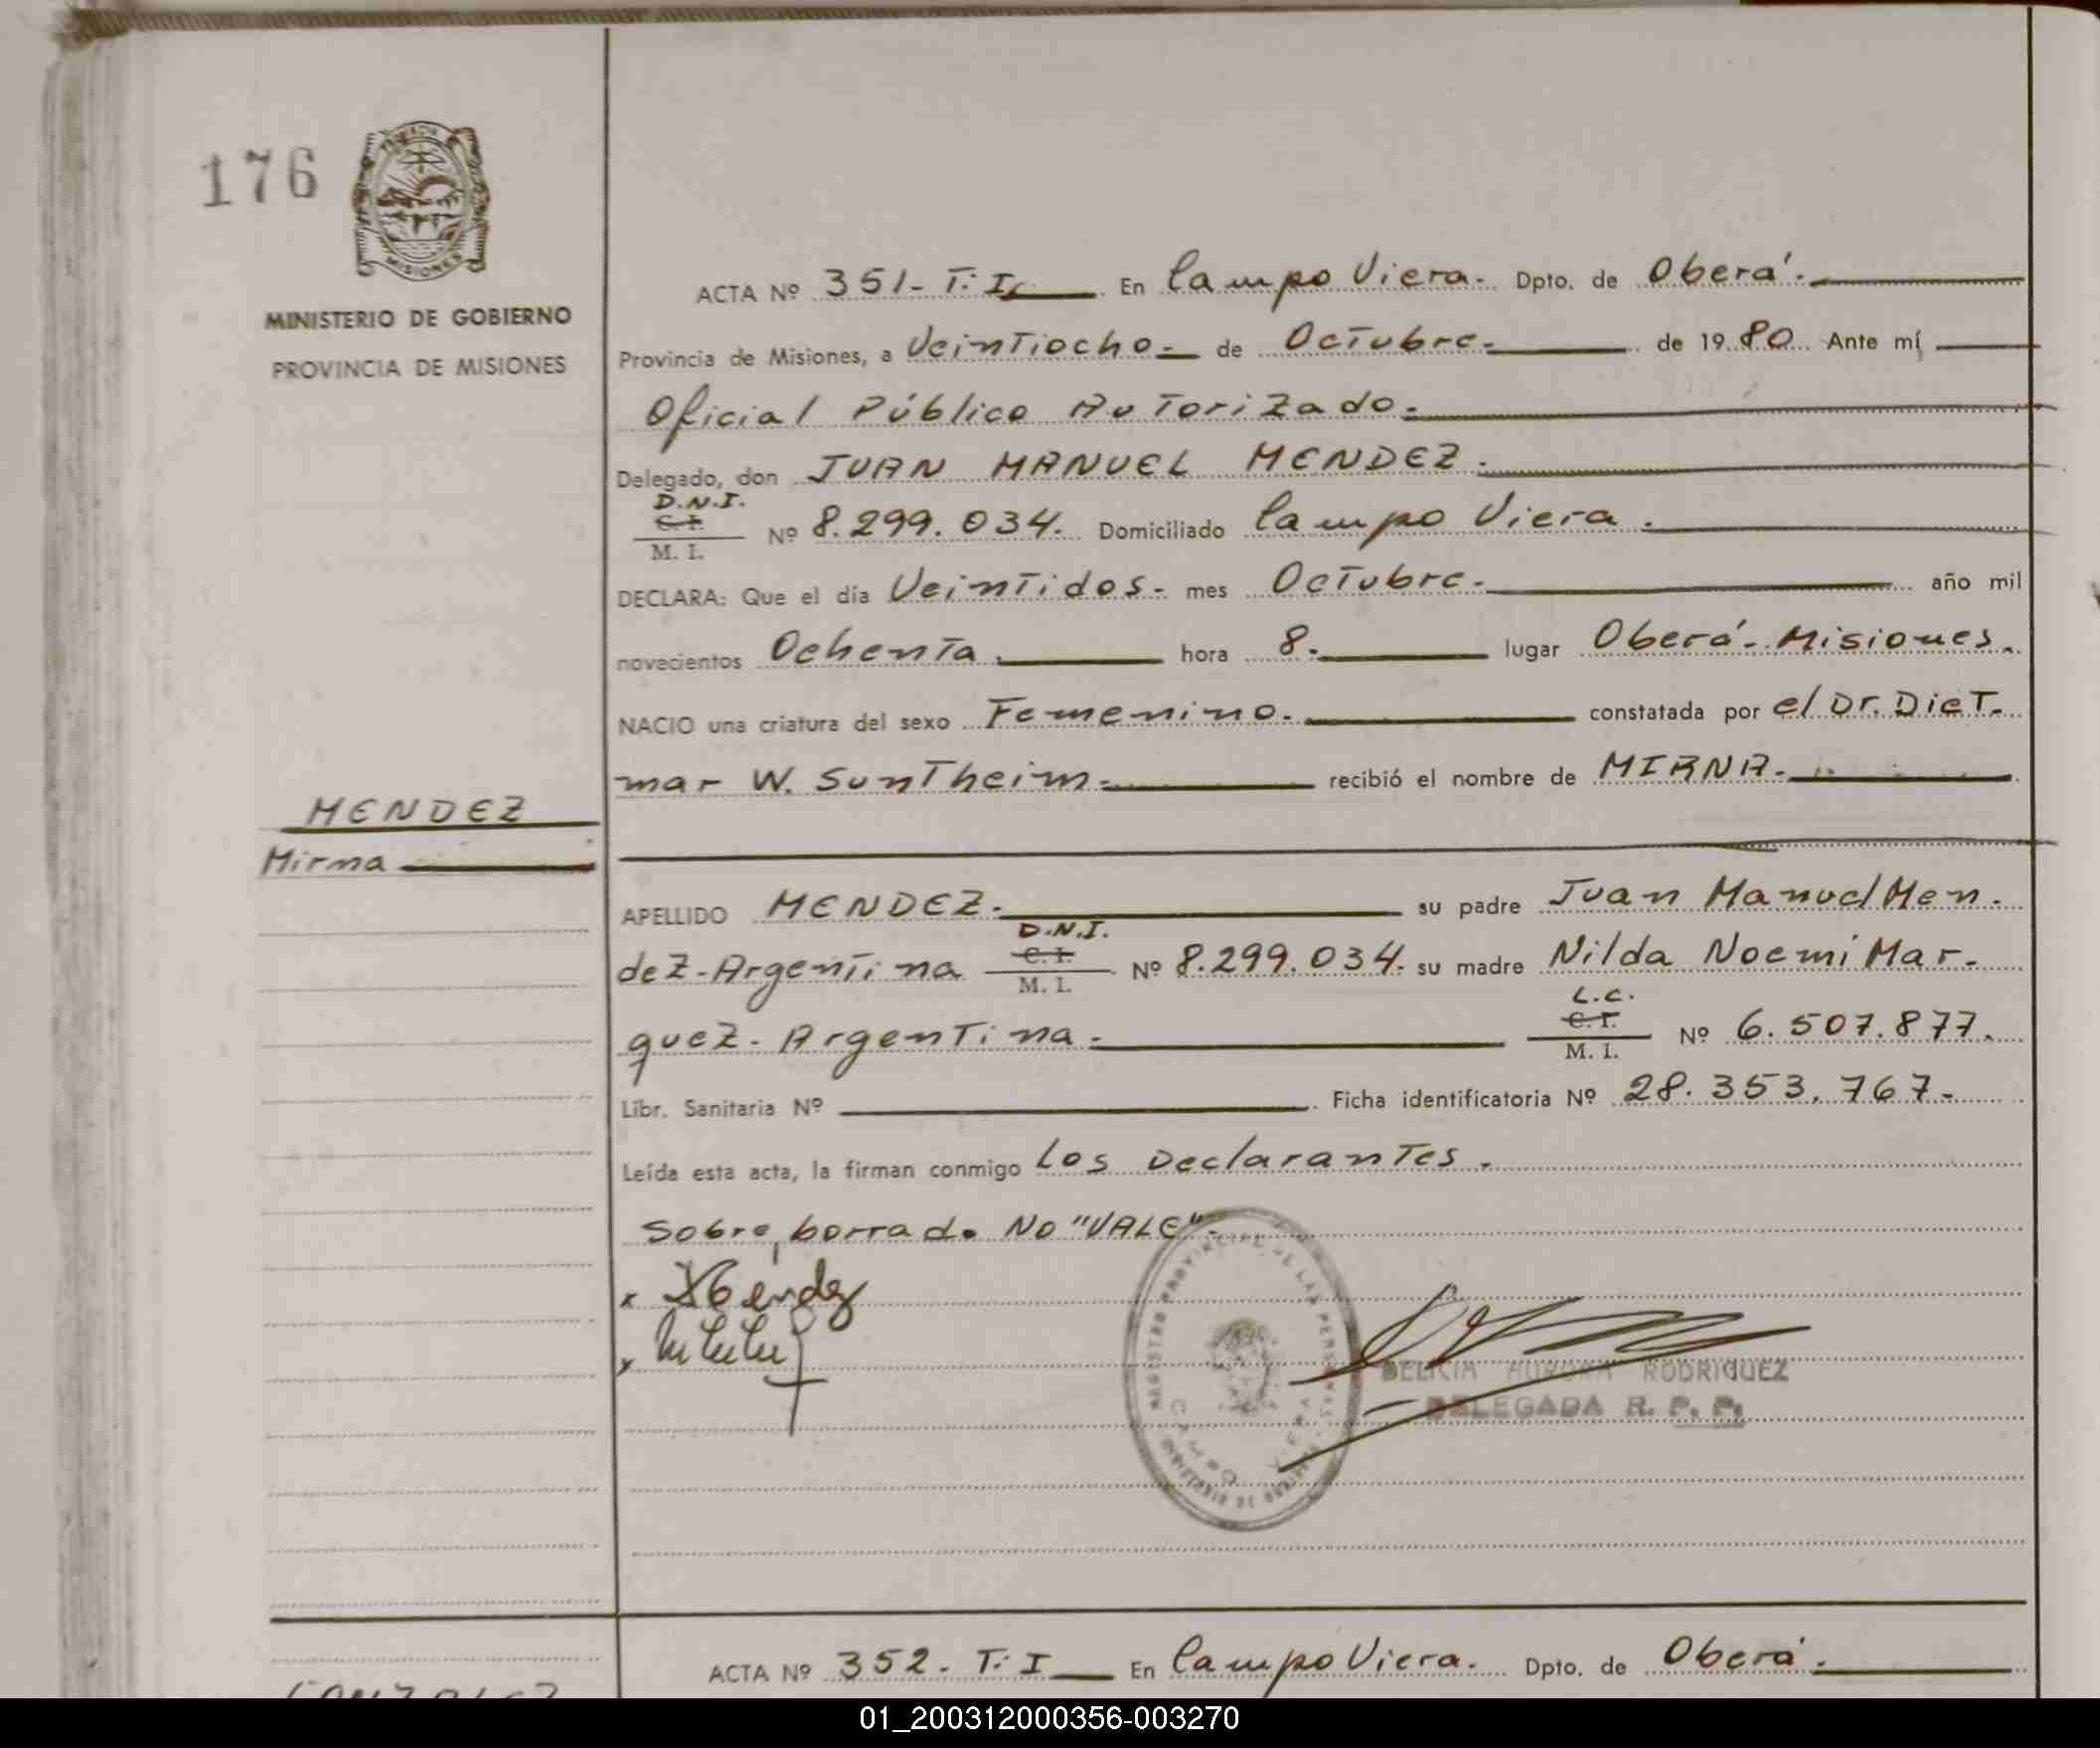 176
MISIONES
MINISTERIO DE GOBIERNO
PROVINCIA DE MISIONES
MENDEZ
Mirna
ACTA Nº 351- T: I, En Campo Viera. Dpto. de Oberá.
Provincia de Misiones, a Veintiocho- de Octubre. de 1980 Ante mí
Oficial Público Autorizado.
Delegado, don JUAN MANUEL MENDEZ.
D.N.I.
C. I.
M. I.
Nº 8.299.034. Domiciliado Campo Viera.
DECLARA: Que el día Veintidos- mes Octubre. año mil
novecientos Ochenta. hora 8. lugar Oberá- Misiones.
NACIO una criatura del sexo Femenino. constatada por el Dr. Diet-
mar W. Suntheim. recibió el nombre de MIRNA.
APELLIDO MENDEZ. su padre Juan Manuel Men-
dez-Argentina D.N.I. C. I. M. I. Nº 8.299.034. su madre Nilda Noemi Mar-
quez- Argentina. L.C. C. I. M. I. Nº 6.507.877.
Libr. Sanitaria Nº Ficha identificatoria Nº 28.353.767-
Leída esta acta, la firman conmigo Los Declarantes.
Sobre borrado No "VALE".
REGISTRO PROVINCIAL DE LAS PERSONAS
CAMPO VIERA
MINISTERIO DE GOBIERNO
DELICIA AURORA RODRIGUEZ
DELEGADA R. P. P.
ACTA Nº 352- T: I En Campo Viera. Dpto. de Oberá.
01_200312000356-003270